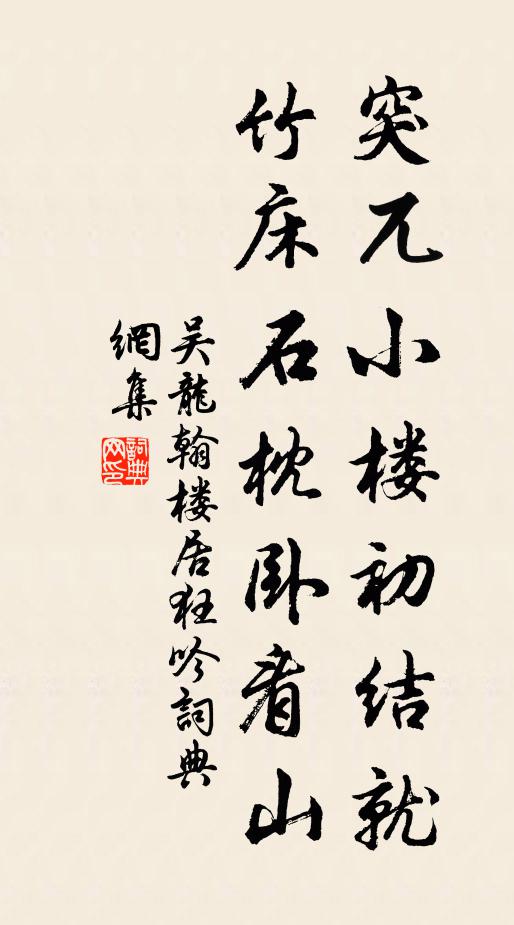 突兀小楼初结就
竹床石枕卧看山
吴龍翰楼居狂吟詞典
網集
詞典网印